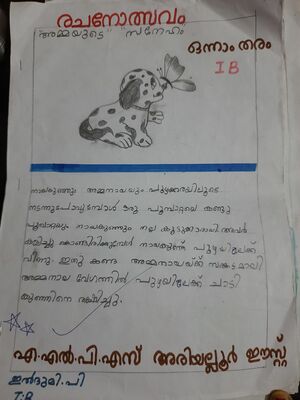 രചനോത്സവം
"അമ്മയുടെ" "സ്നേഹം
ഒന്നാം തരം
I B
നായകുഞ്ഞും അമ്മനായയും പുഴക്കരയിലൂടെ
നടന്നുപോവുമ്പോൾ ഒരു പൂമ്പാറ്റയെ കണ്ടു
പൂമ്പാറ്റയും നായകുഞ്ഞും നല്ല കൂട്ടുക്കാരായി അവർ
കളിച്ചു കൊണ്ടിരിക്കുമ്പോൾ നായകുഞ്ഞ് പുഴയിലേക്ക്
വീണു. ഇതു കണ്ട അമ്മനായയ്ക്ക് സങ്കടമായി
അമ്മനായ വേഗത്തിൽ പുഴയിലേക്ക് ചാടി
കുഞ്ഞിനെ രക്ഷിച്ചു.
എ.എൽ.പി.എസ് അരിയല്ലൂർ ഈസ്റ്റ്
ഇൻദുമി.പി
I:B